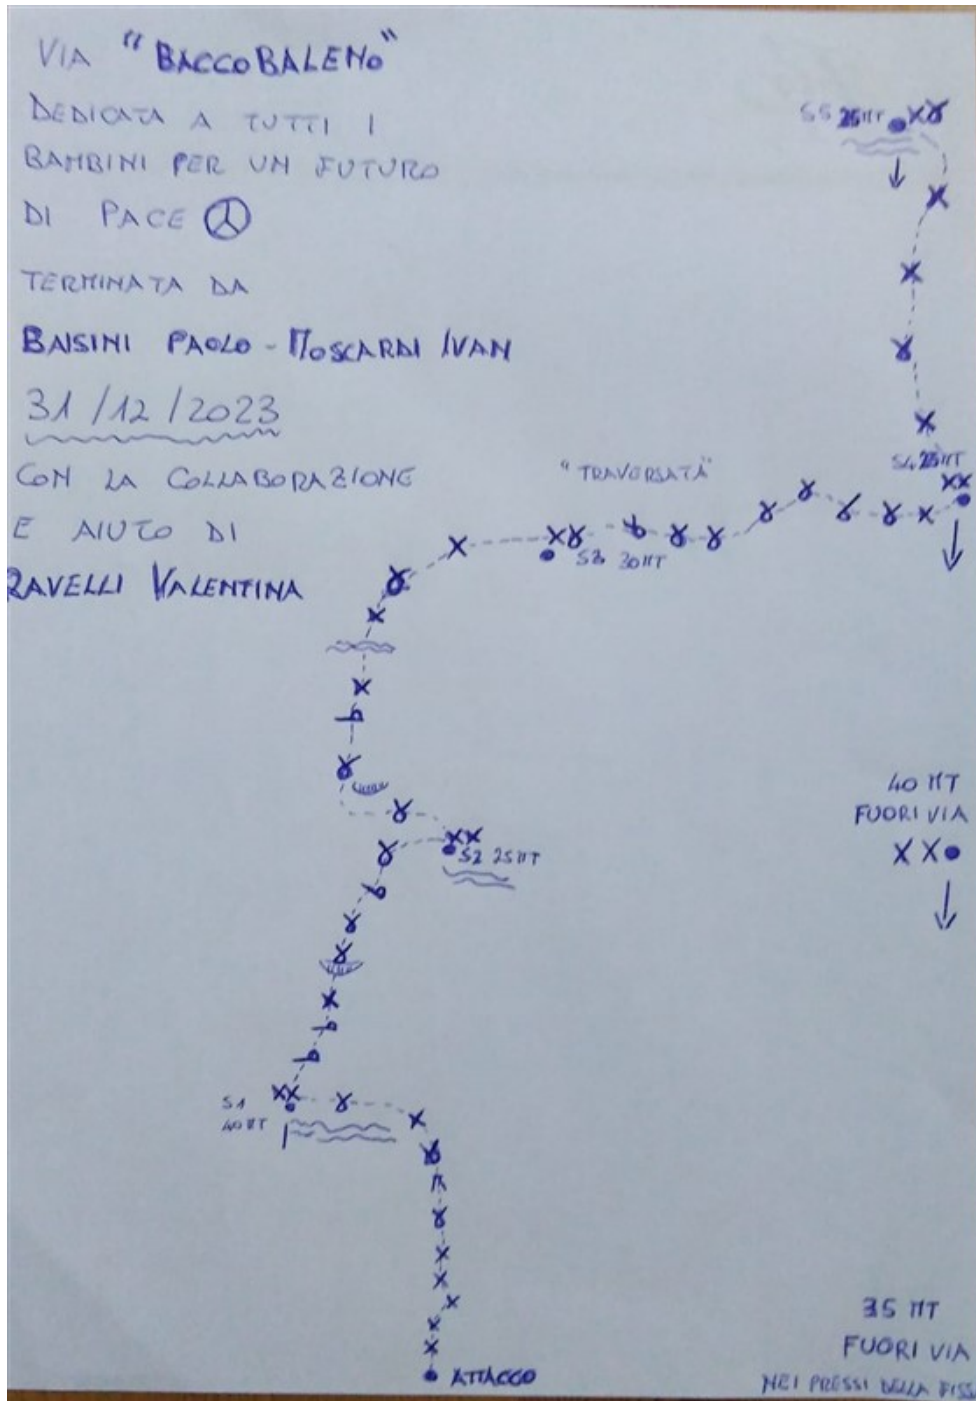 VIA "BACCOBALENO"
DEDICATA A TUTTI I
BAMBINI PER UN FUTURO
DI PACE
TERMINATA DA
BAISINI PAOLO - MOSCARDI IVAN
31/12/2023
CON LA COLLABORAZIONE
E AIUTO DI
RAVELLI VALENTINA
S5 25 MT
S4 25 MT
"TRAVERSATA"
S3 30 MT
40 MT
FUORI VIA
S2 25 MT
S1
40 MT
35 MT
FUORI VIA
NEI PRESSI DELLA FISS
ATTACCO